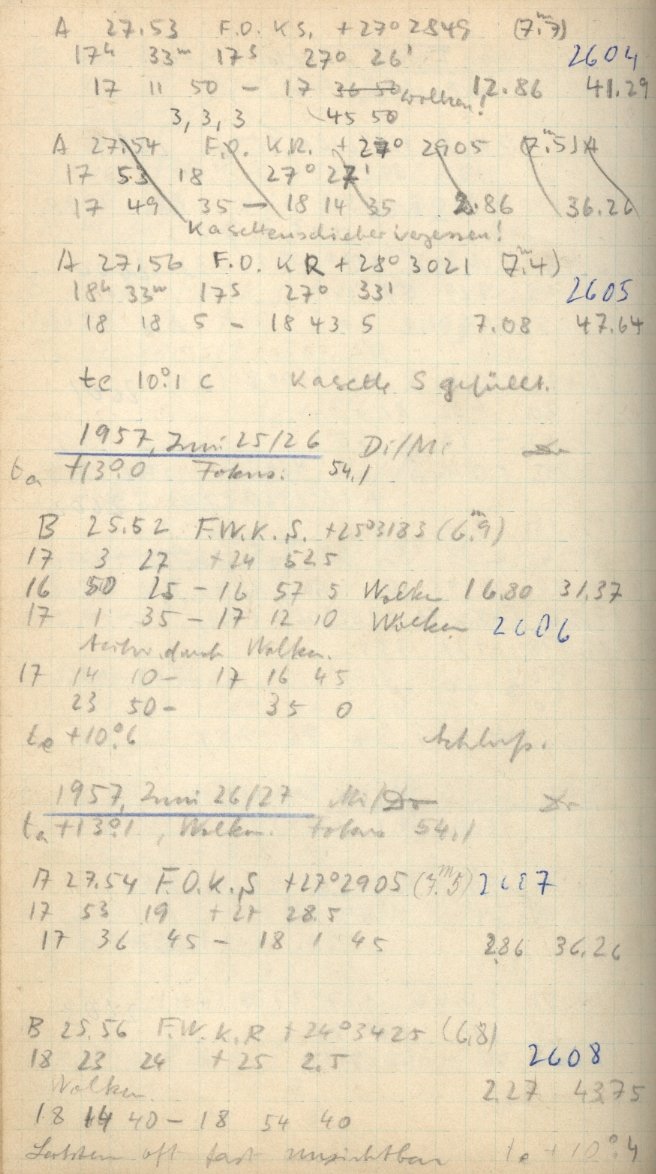 A 27.53 F.O. K.S. +27° 2849 (7ᵐ.7)
17ʰ 33ᵐ 17ˢ 27° 26' 2604
17 11 50 – 17 36 50 Wolken! 12.86 41.29
3, 3, 3 45 50
A 27.54 F.O. K.R. + 27° 2905 (7ᵐ.5)
17 53 18 27° 27'
17 49 35 – 18 14 35 2.86 36.26
Kasettenschieber vergessen!
A 27.56 F.O. K R +28° 3021 (7ᵐ.4)
18ʰ 33ᵐ 17ˢ 27° 33' 2605
18 18 5 – 18 43 5 7.08 47.64
te 10°.1 C Kasette S gefüllt.
1957, Juni 25/26 Di/Mi
ta +13°.0 Fokus: 54.1
B 25.52 F.W.K.S. +25°3183 (6ᵐ.9)
17 3 27 +24 52.5
16 50 25 – 16 57 5 Wolken 16.80 31.37
17 1 35 – 17 12 10 Wolken 2606
durch Wolken.
17 14 10 – 17 16 45
23 50 – 35 0
te +10°.6 Schluß.
1957, Juni 26/27 Mi/Do
ta +13°.1, Wolken. Fokus 54.1
A 27.54 F.O.K.S +27°2905 (7ᵐ.5) 2607
17 53 19 +27 28.5
17 36 45 – 18 1 45 2.86 36.26
B 25.56 F.W.K.R +24°3425 (6.8)
18 23 24 +25 2.5 2608
Wolken. 2.27 43.75
18 14 40 – 18 54 40
Leitstern oft fast unsichtbar te +10°.4